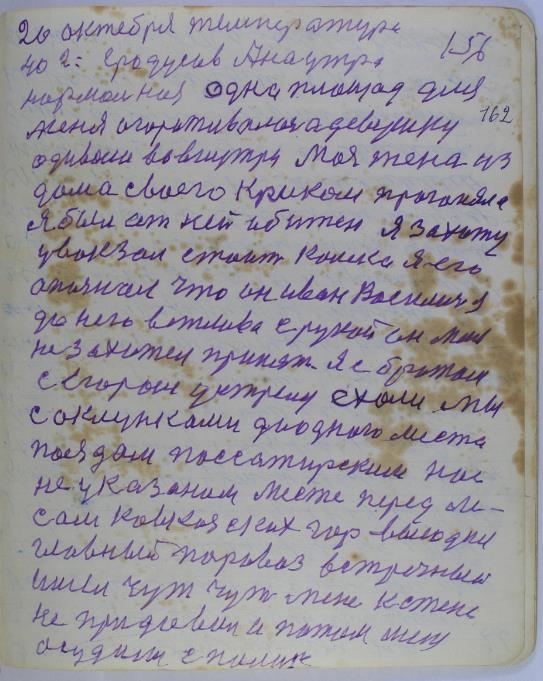 20 октября температура
156
40 г: градусов А на утра
нормолная одна площад для
162
меня огоративалася а девушку
одивали вовнутрь Моя жена из
дома своего Криком прогоняла
Я был от ней обижен Я захожу
у вокзал стоит Кошка Я его
опознал Что он иван Василич я
до него вежлива с рукой он мои
не захотел принят. Я с братом
с Егором устрелу ехали мы
с оклунками до одного места
поездам поссажирским нас
не указаном месте перед ле-
сом Кавказских гор высодил
главный поровоз встречный
шли Чут Чут мене к стене
не придавил и потом мену
осудили с полик